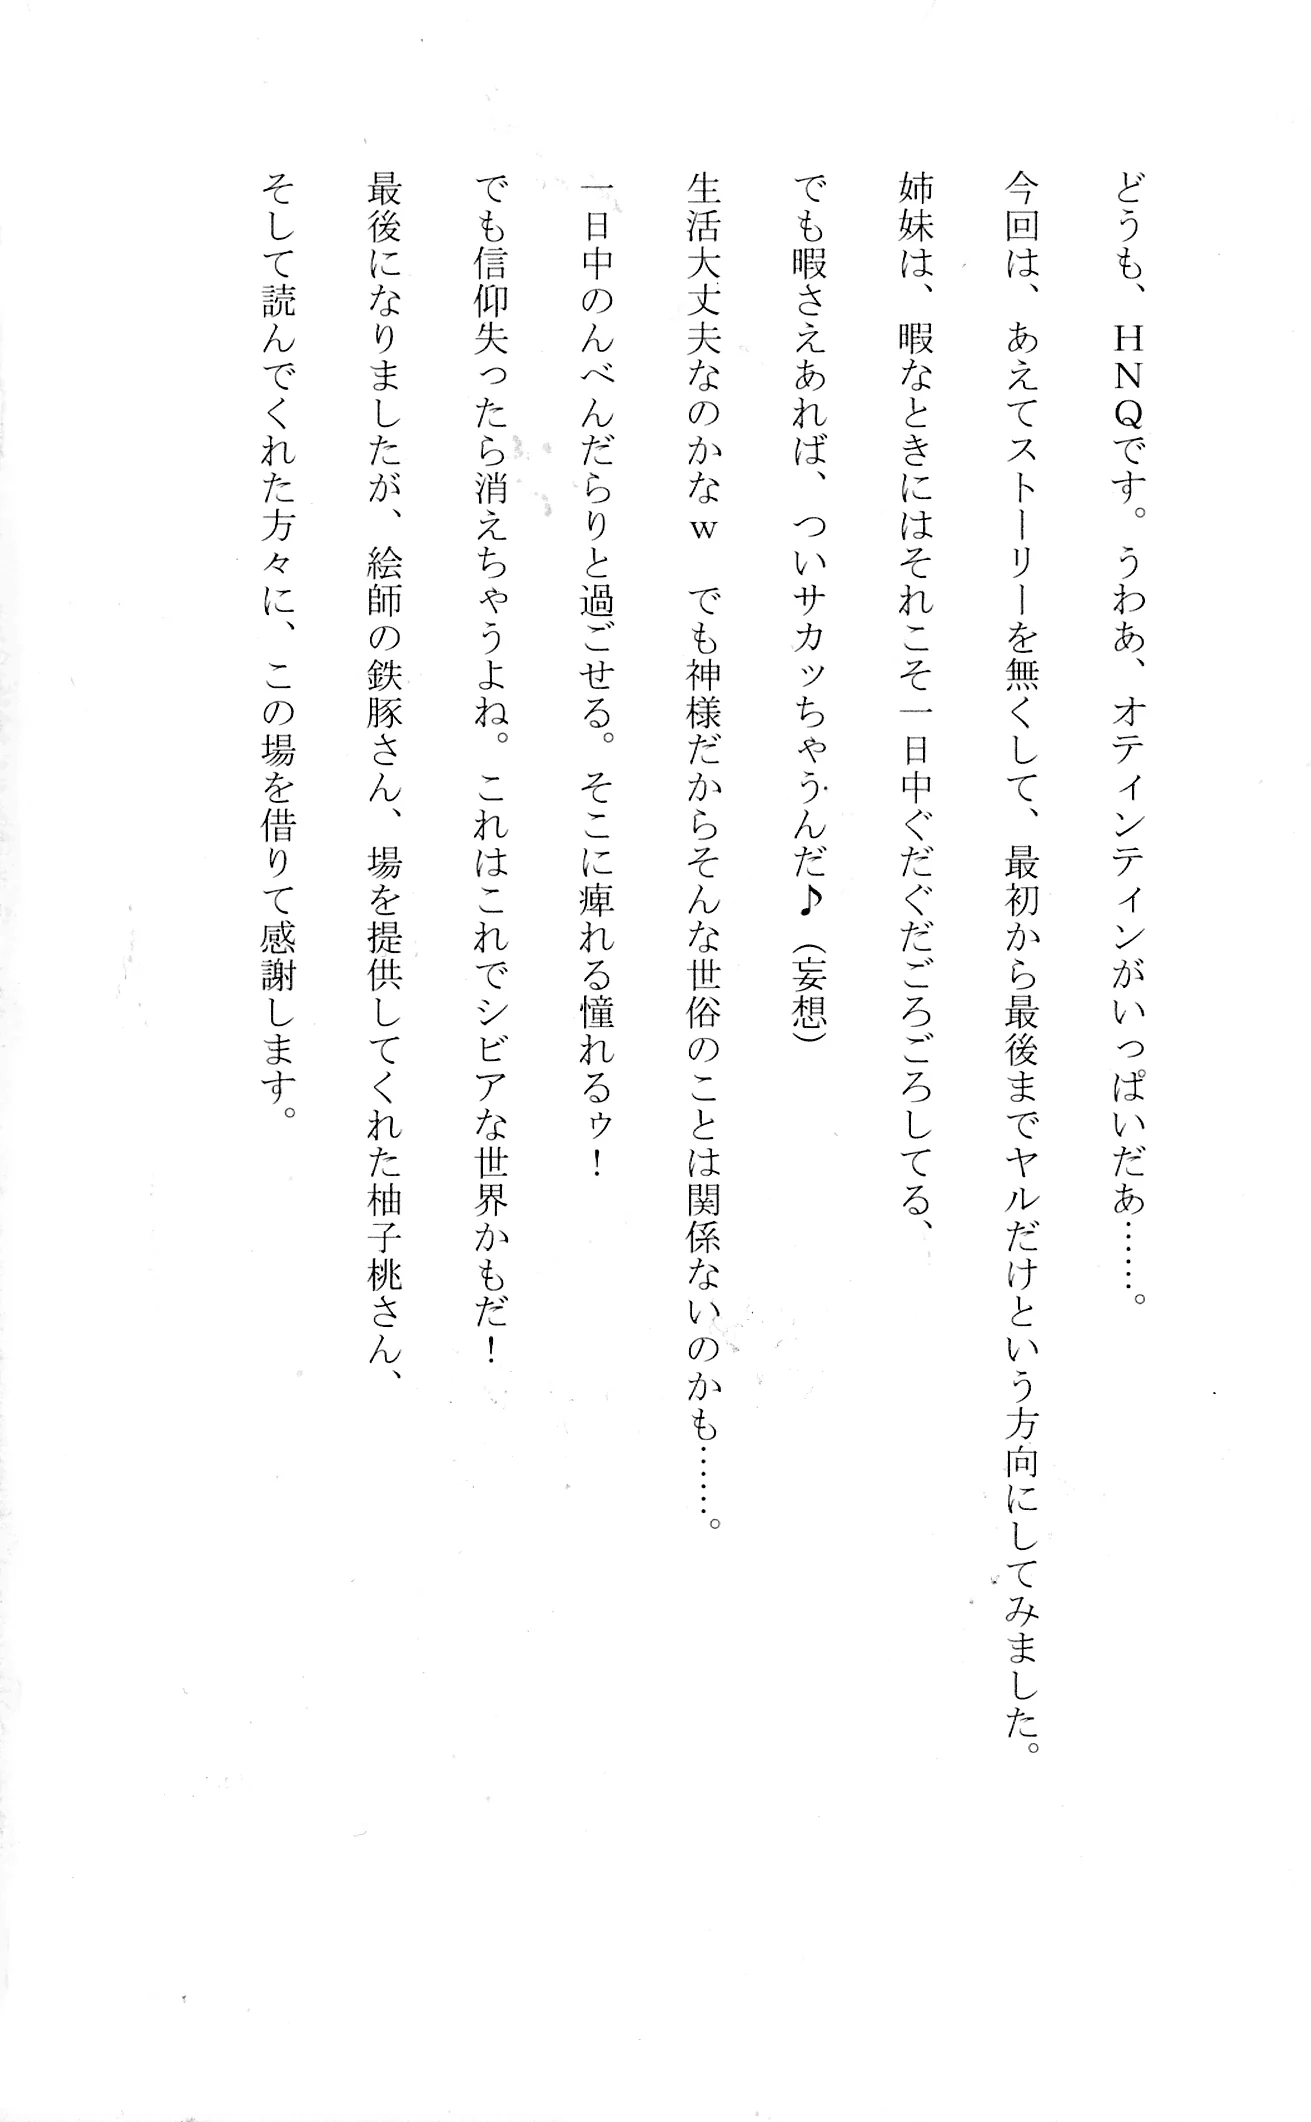 どうも、ＨＮＱです。うわあ、オティンティンがいっぱいだあ……。
今回は、あえてストーリーを無くして、最初から最後までヤルだけという方向にしてみました。
姉妹は、暇なときにはそれこそ一日中ぐだぐだごろごろしてる、
でも暇さえあれば、ついサカッちゃうんだ♪（妄想）
生活大丈夫なのかなｗ　でも神様だからそんな世俗のことは関係ないのかも……。
一日中のんべんだらりと過ごせる。そこに痺れる憧れるゥ！
でも信仰失ったら消えちゃうよね。これはこれでシビアな世界かもだ！
最後になりましたが、絵師の鉄豚さん、場を提供してくれた柚子桃さん、
そして読んでくれた方々に、この場を借りて感謝します。